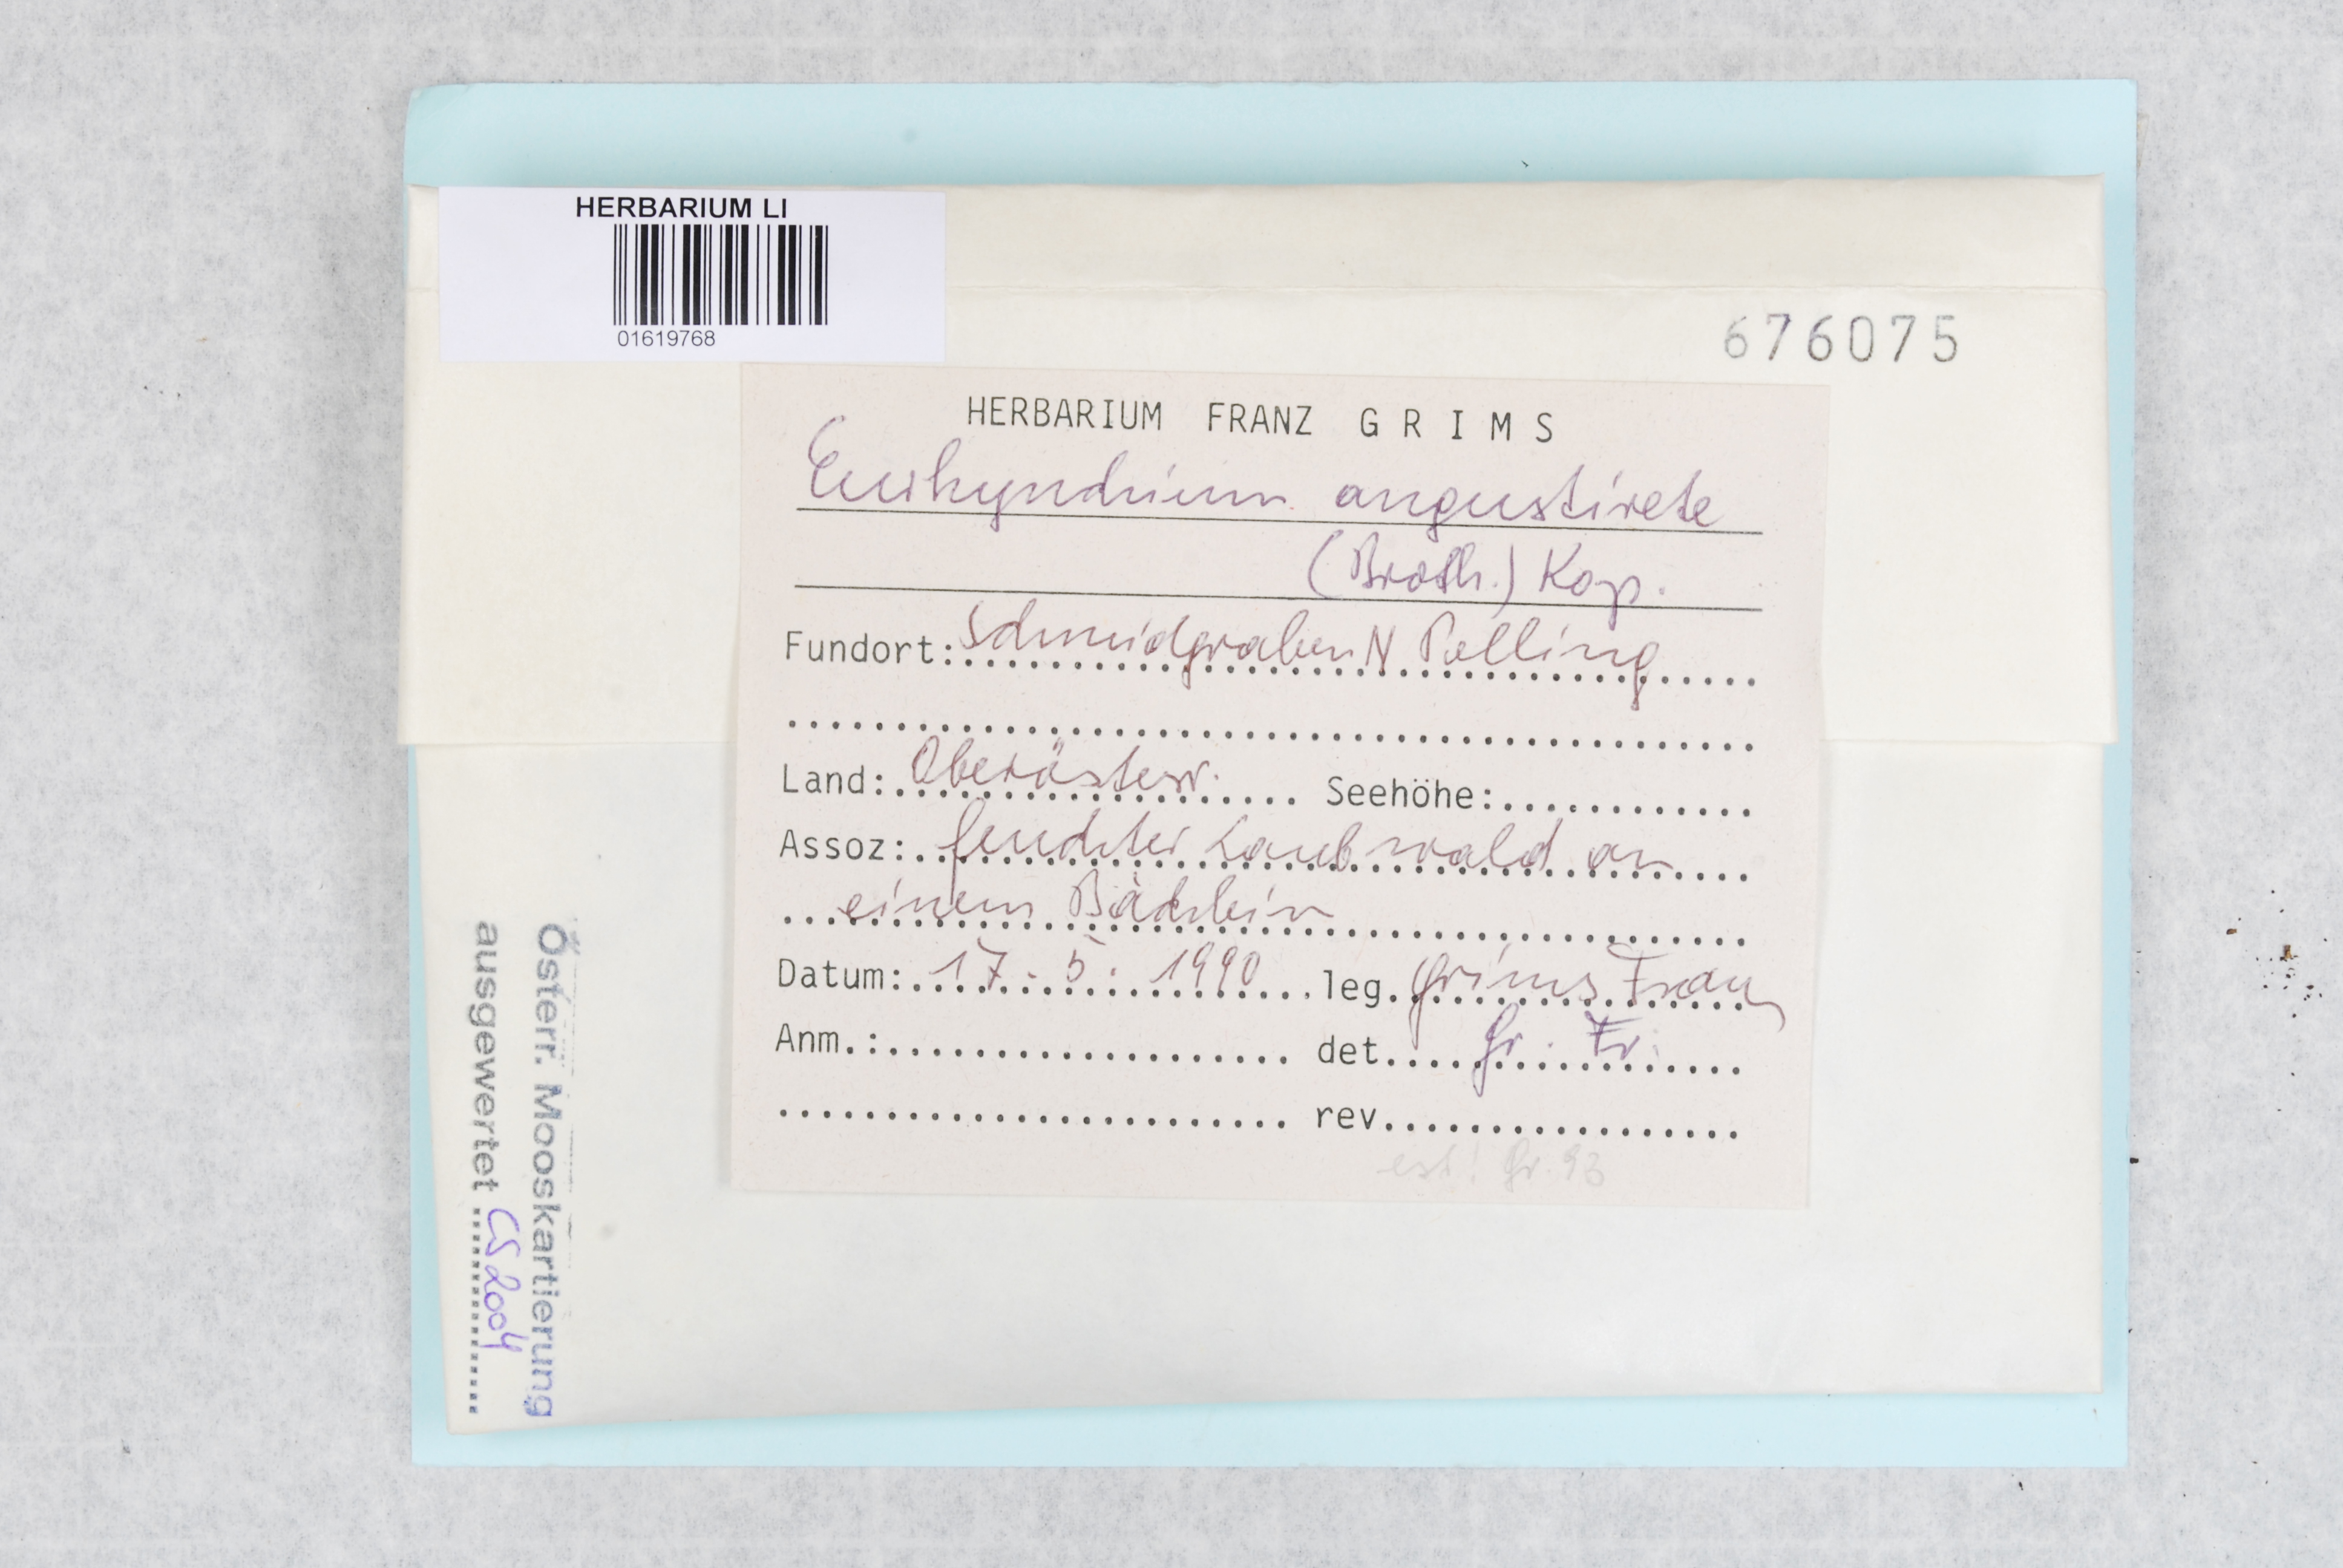 HERBARIUM LI
01619768
676075
HERBARIUM FRANZ GRIMS
Eurhynchium angustirete
(Broth.) Kop.
Fundort: Schmidgraben N Polling
Land: Oberösterr. Seehöhe:
Assoz: feuchter Laubwald an
einem Bächlein
Datum: 17. 5. 1990 leg. Grims Franz
Anm.: det. Gr. Fr.
rev.
est! Gr. 93
Österr. Mooskartierung
ausgewertet CS 2004